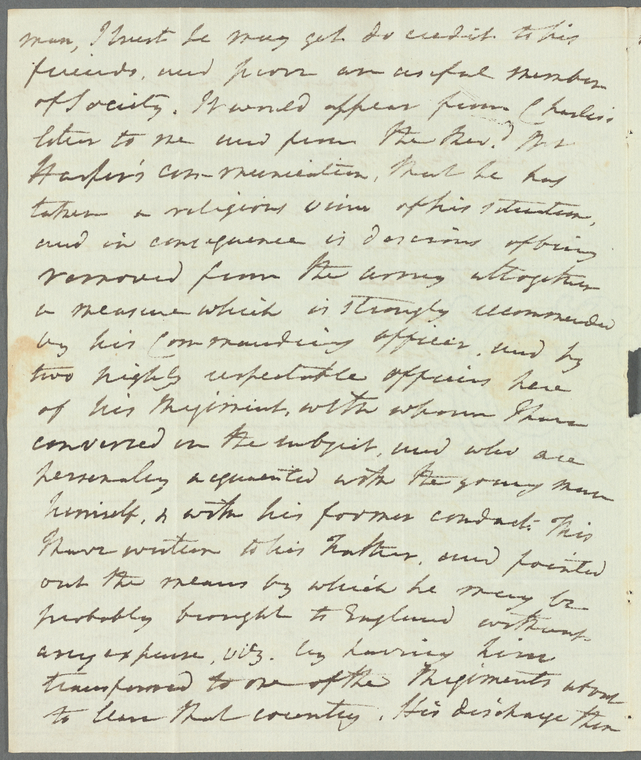 man, I trust he may yet do credit to his
friends, and prove an useful member
of Society. It would appear from Charles's
letter to me and from the Revd. Mr
Harper's communication, that he has
taken a religious view of his situation,
and in consequence is desirous of being
removed from the army altogether
a measure which is strongly recommended
by his Commanding officer, and by
two highly respectable officers here
of his Regiment, with whom I have
conversed on the subject, and who are
personally acquainted with the young man
himself, & with his former conduct. This
I have written to his Father, and pointed
out the means by which he may be
probably brought to England without
any expense, viz. by having him
transferred to one of the Regiments about
to leave that country. His discharge then